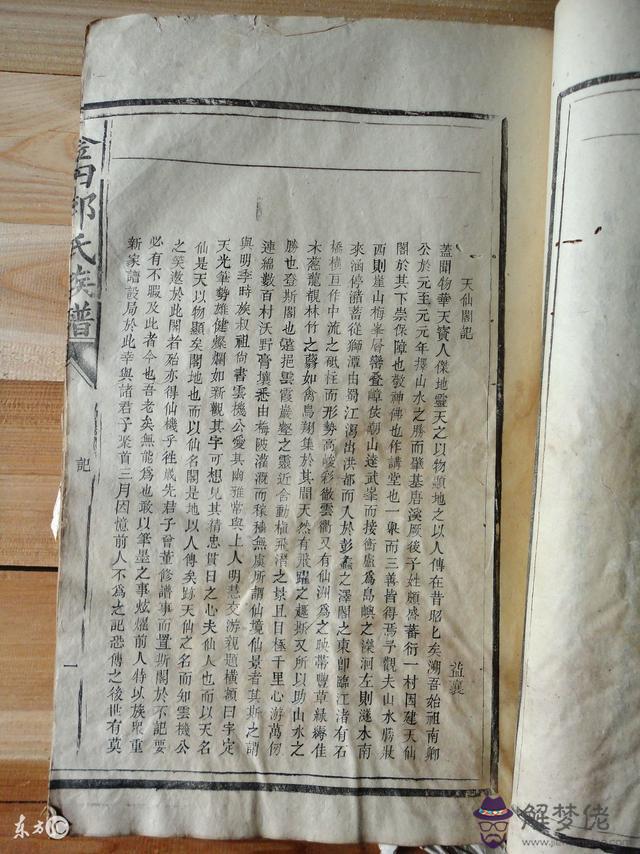 天仙閣記
益襄
蓋聞物華天寶人傑地靈天之以物顯地之以人傳在昔昭昭矣溯吾始祖南卿
公於元至元元年擇山水之勝而肇基唐溪厥後子姓頗盛蕃衍一村因建天仙
閣於其下崇保障也敬神佛也作講堂也一舉而三善皆得焉予觀夫山水勝狀
西則崖山梅峯層巒叠嶂使朝山達武峯而接衡廬為島嶼之濚洄左則漨水南
來涵停潴蓄從獅潭由蜀江瀉出洪都而入於彭蠡之澤閣之東卽臨江渚有石
橋橫亘作中流之砥柱而形勢高峻彩徹雲衢又有仙洲為之映帶豐草綠縟佳
木葱蘢觀林竹之蓊如禽鳥翔集於其間天然有飛躍之趣斯又所以助山水之
勝也登斯閣也遠挹雲霞巖壑之靈近含動植飛潛之景且目極千里心游萬仞
連綿數百村沃野膏壤悉由梅陂灌溉而稼穡無虞所謂仙境仙景者其斯之謂
與明季時族叔祖尚書雲機公愛其幽雅常與上人明慧交游親題橫額曰宇定
天光筆勢雄健燦爛如新觀其字可想見其精忠貫日之心夫仙人也而以天名
仙是天以物顯矣閣地也而以仙名閣是地以人傳矣跡天仙之名而知雲機公
之笑遨於此閣者殆亦得仙機乎徃歲先君子曾董修譜事而置斯閣於不記要
必有不暇及此者今也吾老矣無能為也敢以筆墨之事炫燿前人特以族衆重
新家譜設局於此幸與諸君子聚首三月因憶前人不為之記恐傳之後世有莫
邱氏族譜
記
一
东方IC
解梦佬